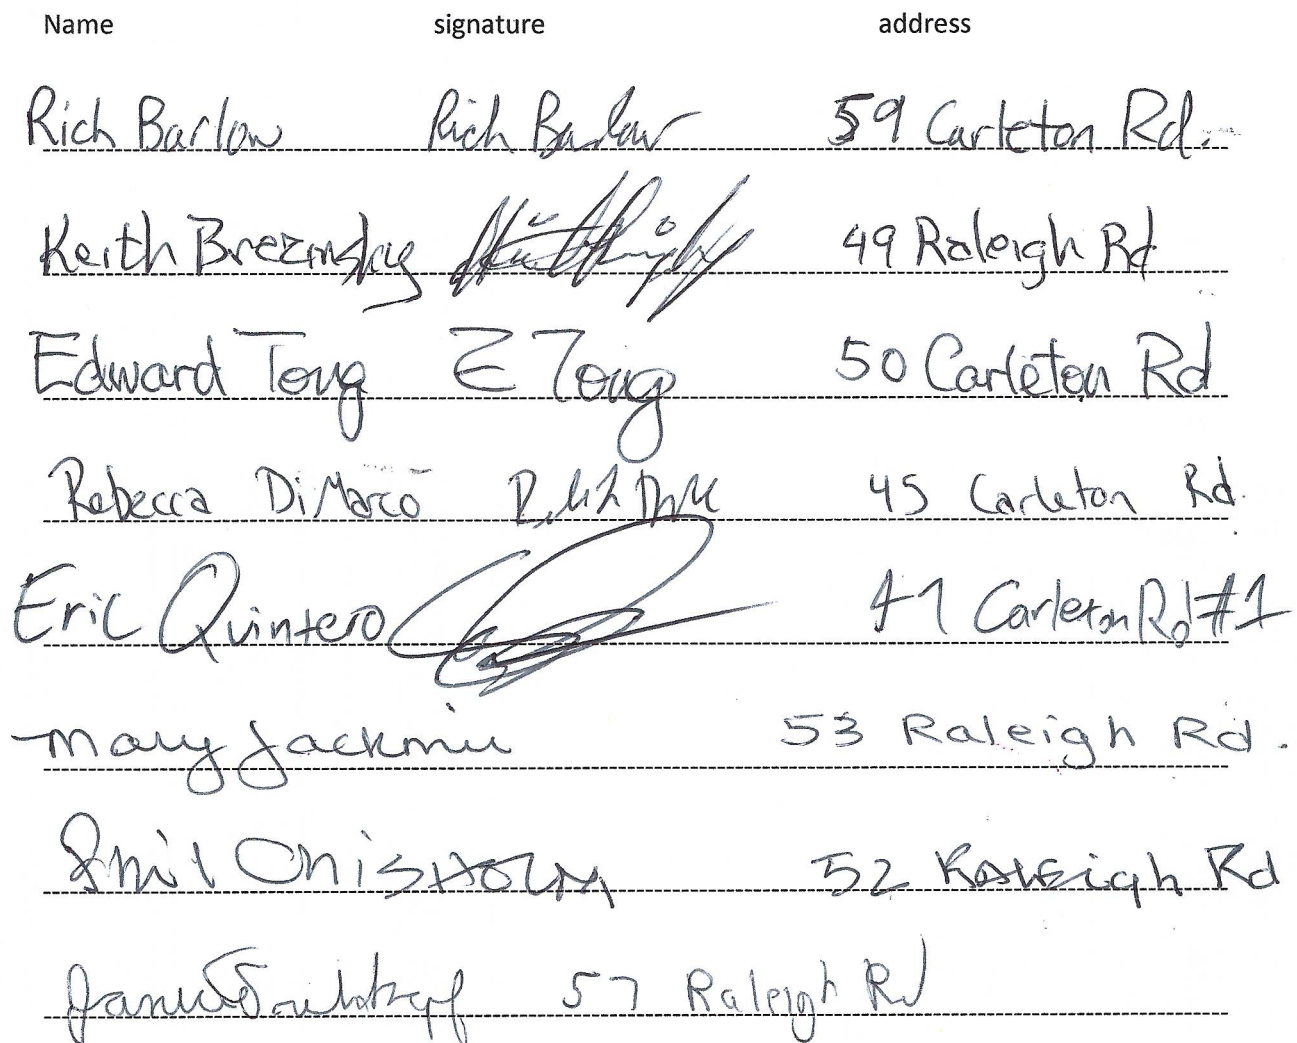 Name signature address
Rich Barlow Rich Barlow 59 Carleton Rd.
Keith Brezinsky 49 Raleigh Rd
Edward Tong E Tong 50 Carleton Rd
Rebecca DiMarco 45 Carleton Rd.
Eric Quintero 41 Carleton Rd #1
Mary Jackmin 53 Raleigh Rd.
Phil Chisholm 52 Raleigh Rd
57 Raleigh Rd